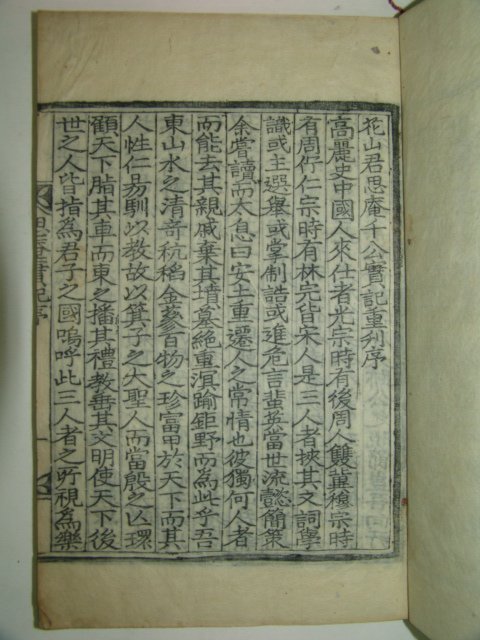 花山君思庵千公實記重刋序
高麗史中國人來仕者光宗時有後周人雙冀穆宗時
有周佇仁宗時有林完皆宋人是三人者挾其文詞學
識或主選舉或掌制誥或進危言蜚英當世流懿簡策
余嘗讀而太息曰安土重遷人之常情也彼獨何人者
而能去其親戚棄其墳墓絶重溟踰鉅野而爲此乎吾
東山水之清奇秔稻金蔘百物之珍富甲於天下而其
人性仁易馴以教故以箕子之大聖人而當殷之亾環
顧天下脂其車而東之播其禮教垂其文明使天下後
世之人皆指爲君子之國嗚呼此三人者之所視爲樂
思庵實紀序